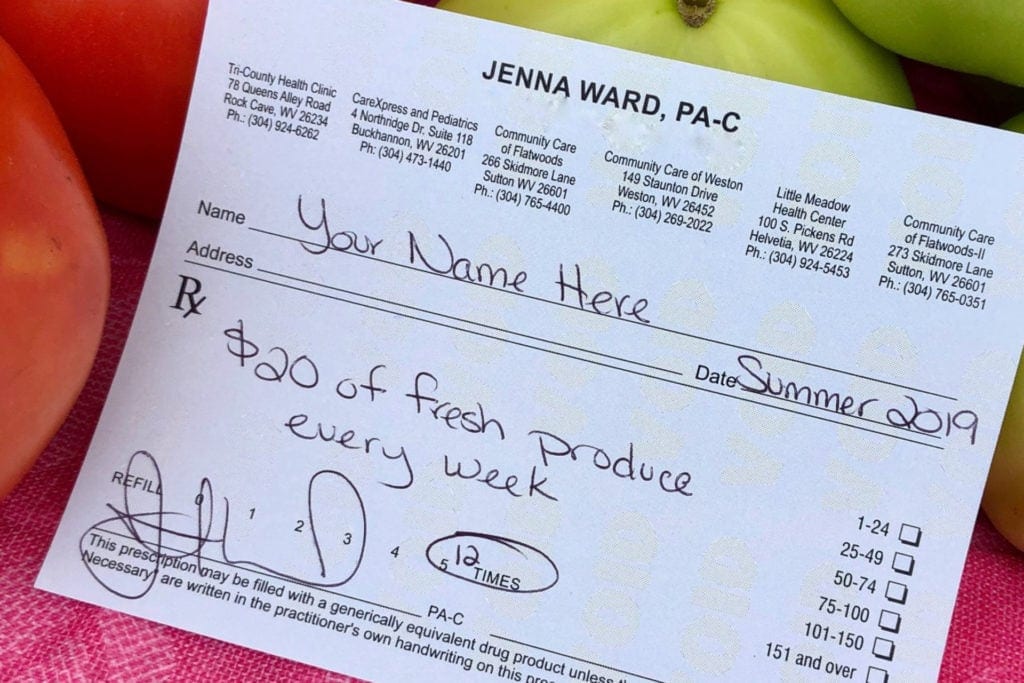 JENNA WARD, PA-C
Tri-County Health Clinic
78 Queens Alley Road
Rock Cave, WV 26234
Ph.: (304) 924-6262
CareXpress and Pediatrics
4 Northridge Dr. Suite 118
Buckhannon, WV 26201
Ph: (304) 473-1440
Community Care
of Flatwoods
266 Skidmore Lane
Sutton WV 26601
Ph.: (304) 765-4400
Community Care of Weston
149 Staunton Drive
Weston, WV 26452
Ph.: (304) 269-2022
Little Meadow
Health Center
100 S. Pickens Rd
Helvetia, WV 26224
Ph.: (304) 924-5453
Community Care
of Flatwoods-II
273 Skidmore Lane
Sutton, WV 26601
Ph.: (304) 765-0351
Name Your Name Here
Address
Date Summer 2019
Rx
$20 of fresh produce
every week
REFILL 1 2 3 4 5 12 TIMES
1-24
25-49
50-74
75-100
101-150
151 and over
PA-C
This prescription may be filled with a generically equivalent drug product unless
Necessary) are written in the practitioner's own handwriting on this